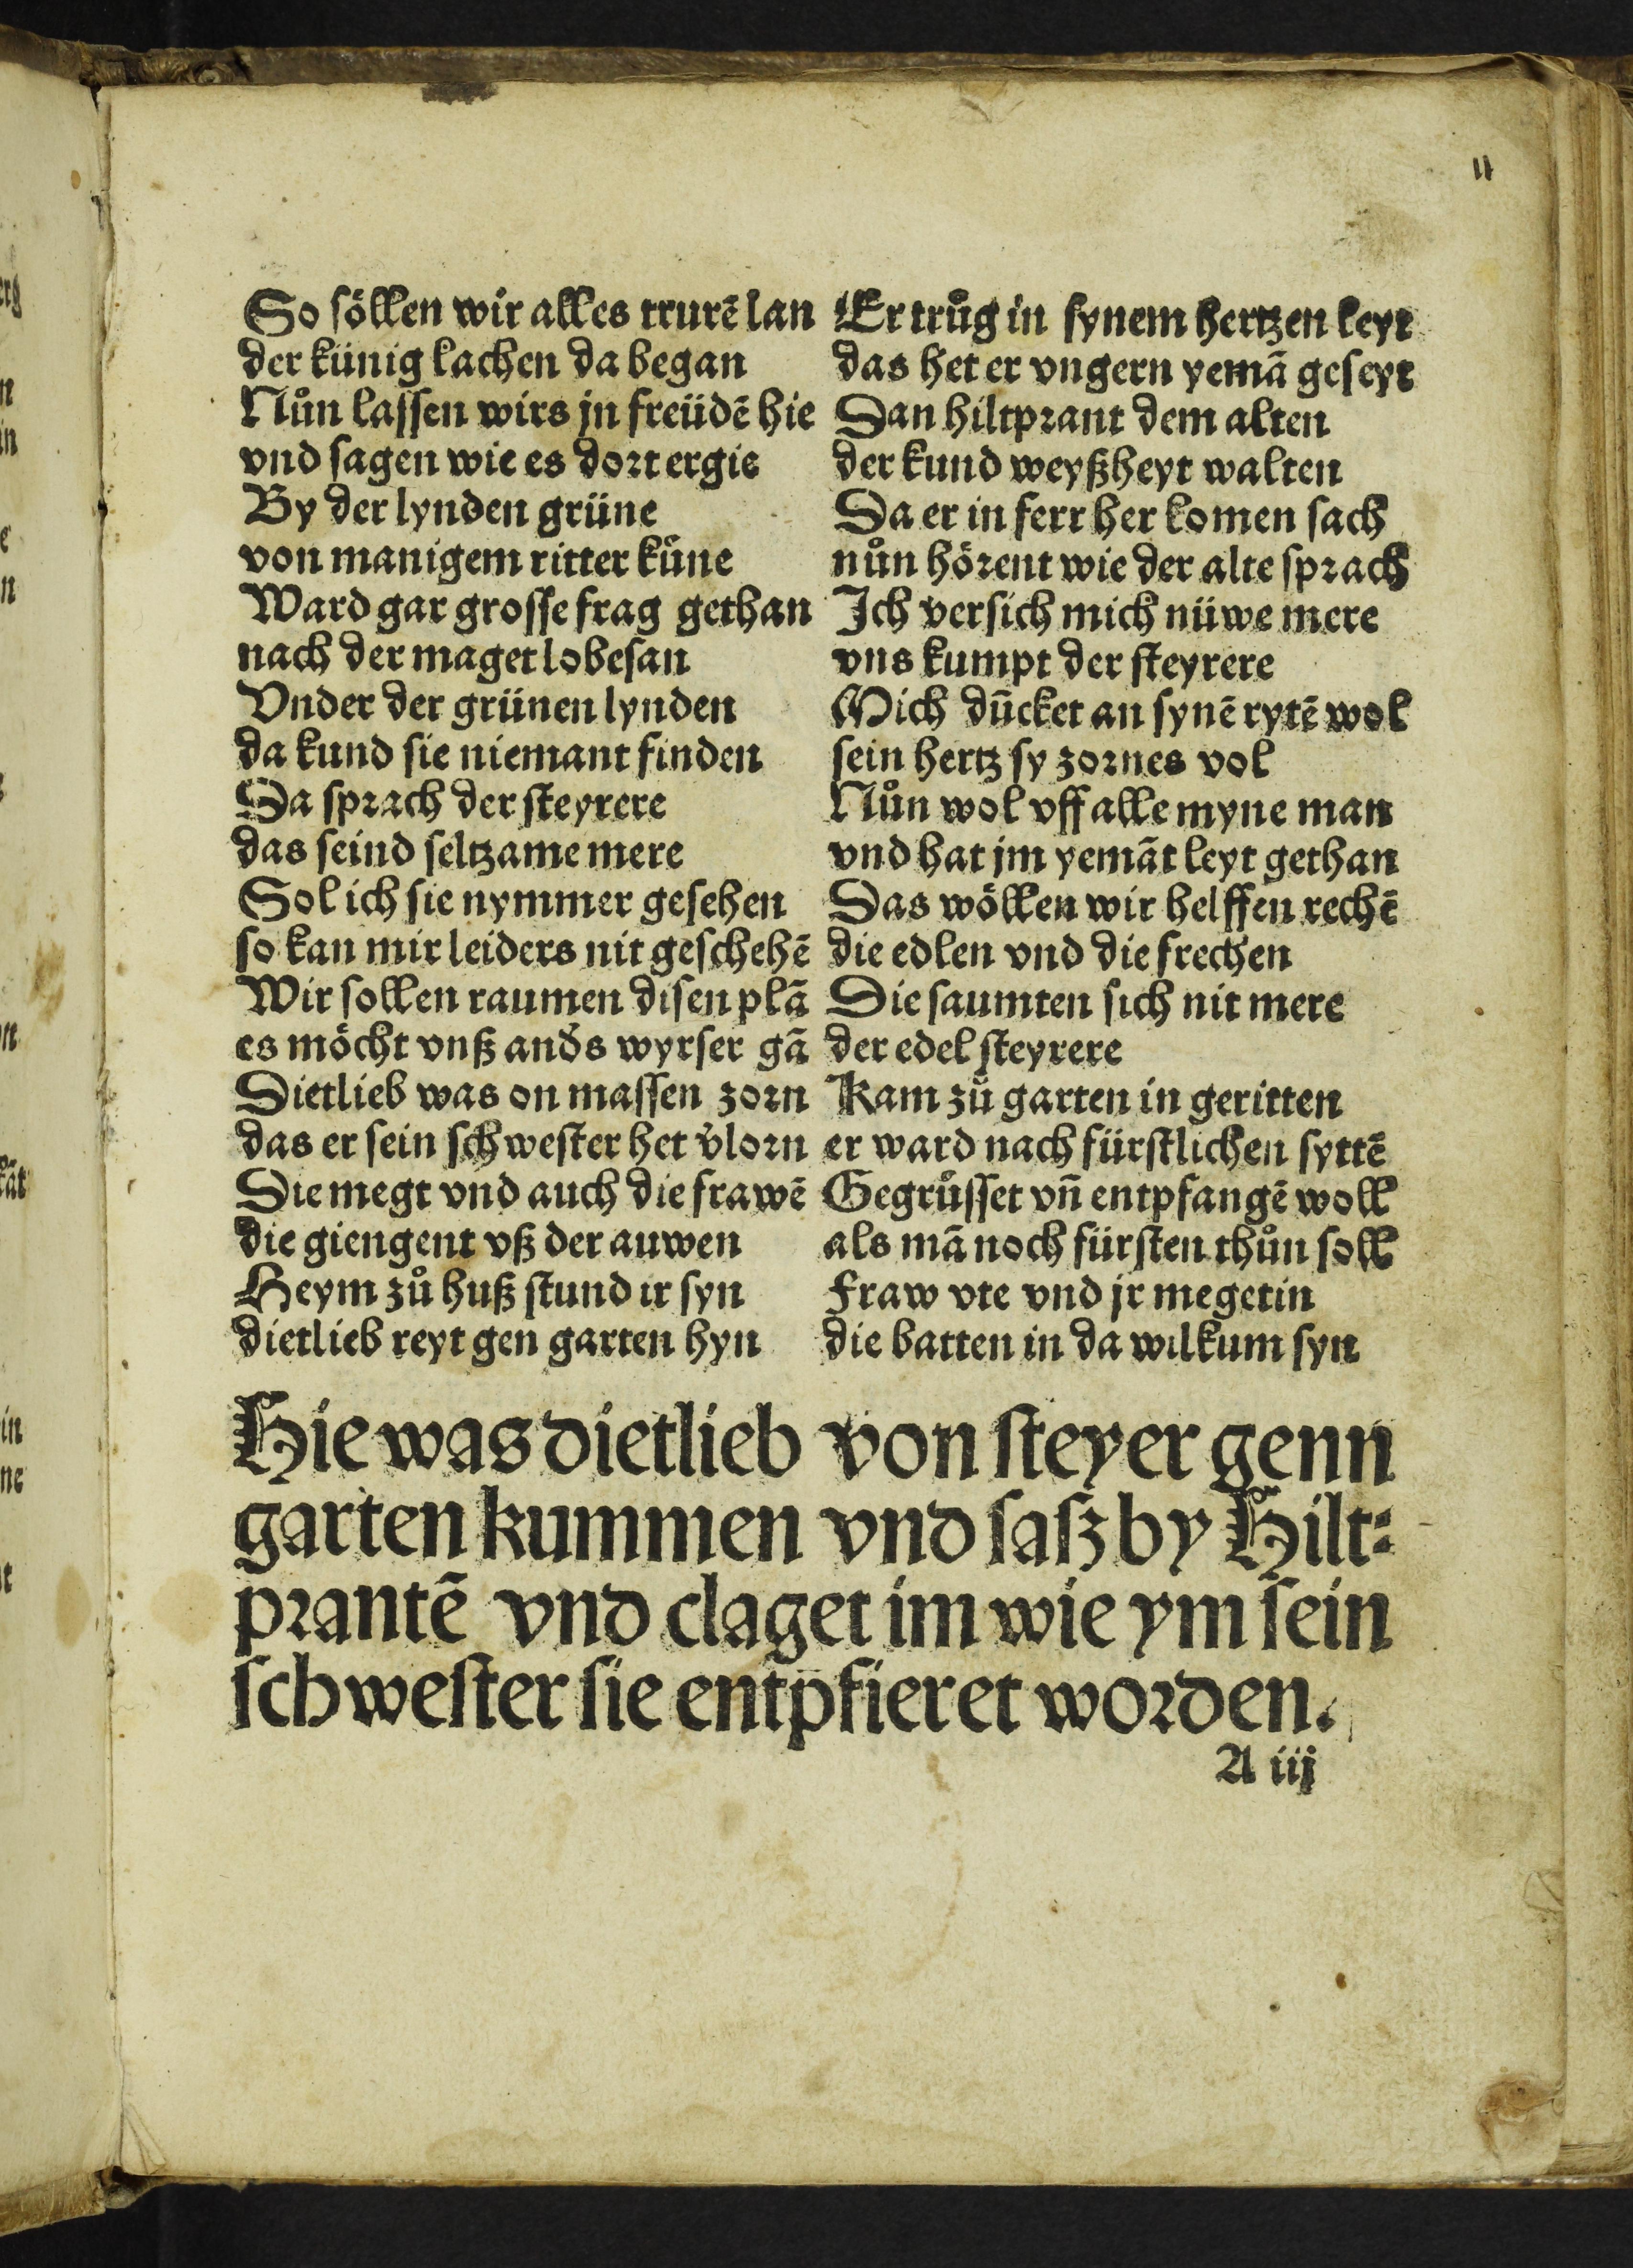 11
So söllen wir alles trurē lan
der künig lachen da began
Nůn lassen wirs jn freüdē hie
vnd sagen wie es dort ergie
By der lynden grüne
von manigem ritter kůne
Ward gar grosse frag gethan
nach der maget lobesan
Vnder der grünen lynden
da kund sie niemant finden
Da sprach der steyrere
das seind seltzame mere
Sol ich sie nymmer gesehen
so kan mir leiders nit geschehē
Wir sollen raumen disen plā
es möcht vnß and's wyrser gā
Dietlieb was on massen zorn
das er sein schwester het v̓lorn
Die megt vnd auch die frawē
die giengent vß der auwen
Heym zů huß stund ir syn
dietlieb reyt gen garten hyn
Er trůg in synem hertzen leyt
das het er vngern yemā geseyt
Dan hiltprant dem alten
der kund weyßheyt walten
Da er in ferr her komen sach
nůn hörent wie der alte sprach
Ich versich mich nüwe mere
vns kumpt der steyrere
Mich dūcket an synē rytē wol
sein hertz sy zornes vol
Nůn wol vff alle myne man
vnd hat jm yemāt leyt gethan
Das wöllen wir helffen rechē
die edlen vnd die frechen
Die saumten sich nit mere
der edel steyrere
Kam zů garten in geritten
er ward nach fürstlichen syttē
Gegrůsset vn̄ entpfangē woll
als mā noch fürsten thůn soll
Fraw vte vnd jr megetin
die batten in da wilkum syn
Hie was dietlieb von steyer genn
garten kummen vnd saß by Hilt⸗
prantē vnd claget im wie ym sein
schwester sie entpfieret worden.
A iij